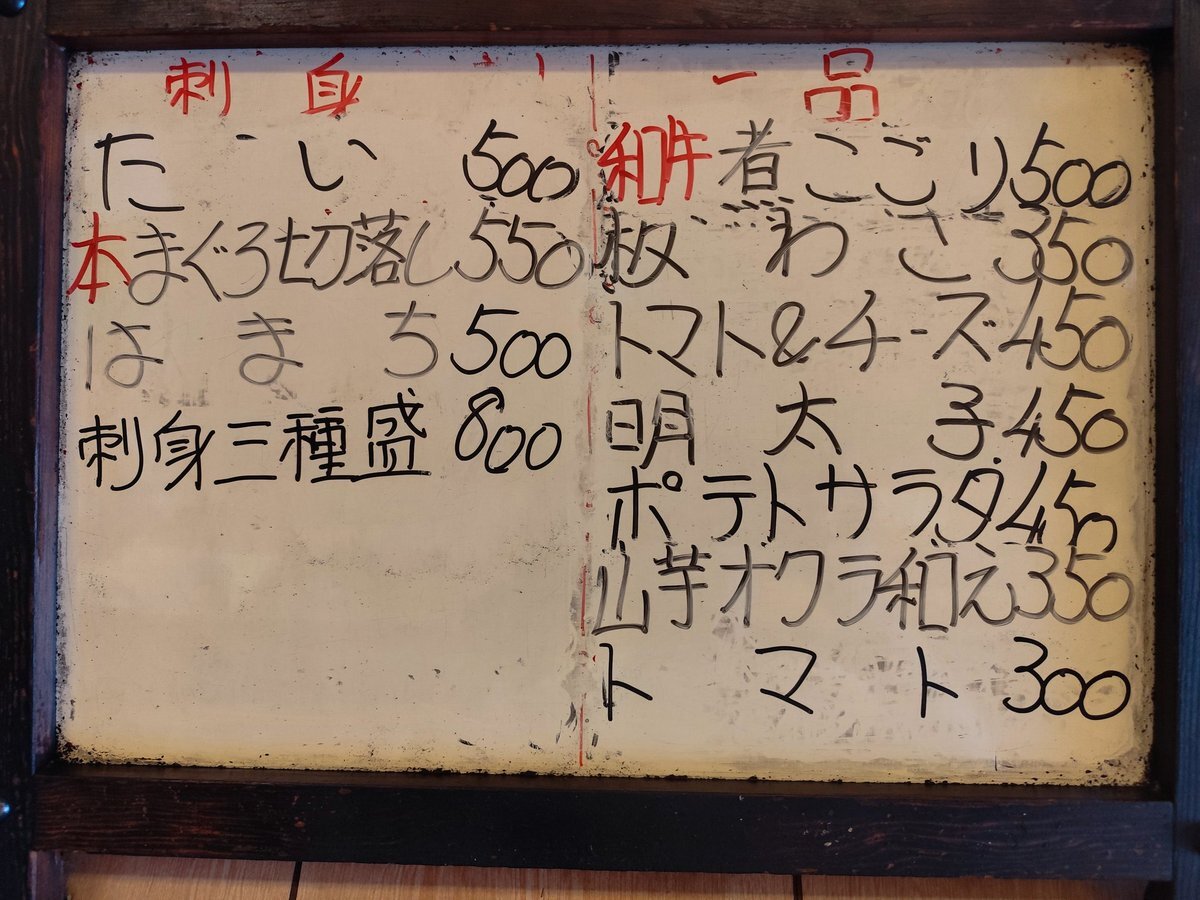 刺身
たい 500
本まぐろ切落し 550
はまち 500
刺身三種盛 800
一品
和牛煮こごり 500
板わさ 350
トマト&チーズ 450
明太子 450
ポテトサラダ 450
山芋オクラ和え 350
トマト 300